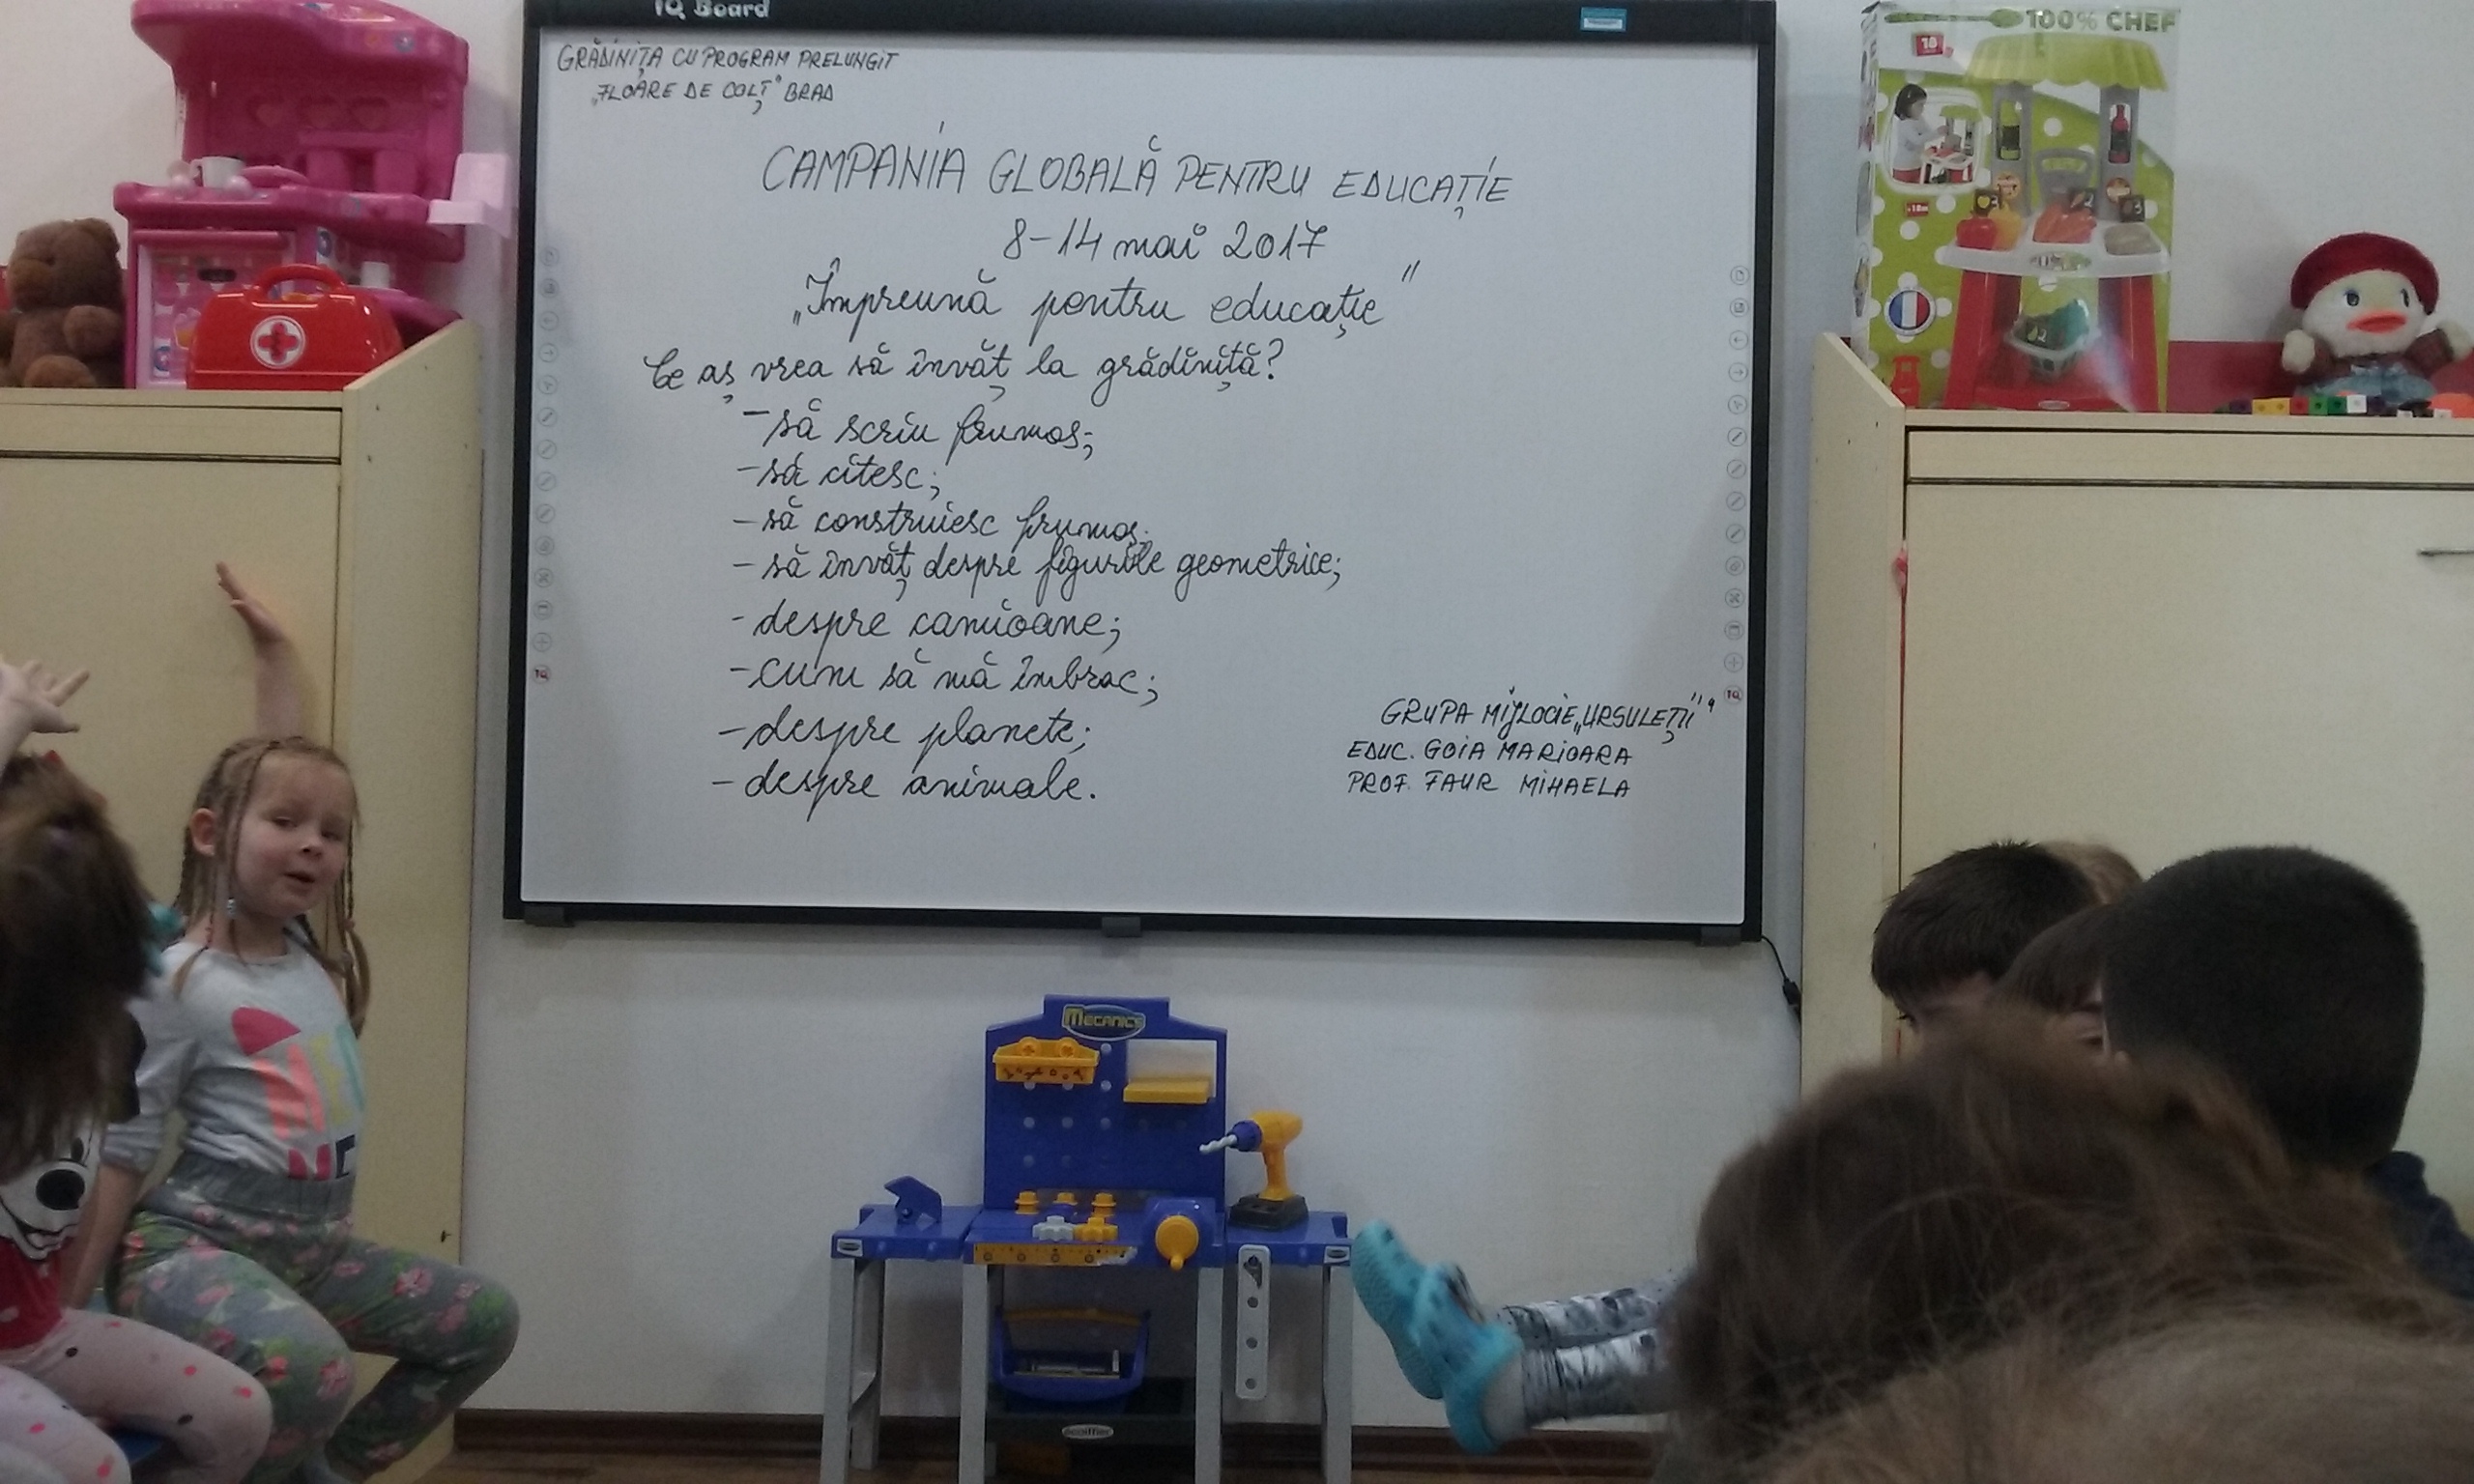 IQ Board
GRĂDINIȚA CU PROGRAM PRELUNGIT
„FLOARE DE COLȚ" BRAD
CAMPANIA GLOBALĂ PENTRU EDUCAȚIE
8-14 mai 2017
„Împreună pentru educație"
Ce aș vrea să învăț la grădiniță?
- să scriu frumos;
- să citesc;
- să construiesc frumos;
- să învăț despre figurile geometrice;
- despre camioane;
- cum să mă îmbrac;
- despre planete;
- despre animale.
GRUPA MIJLOCIE „URSULEȚII"
EDUC. GOIA MARIOARA
PROF. FAUR MIHAELA
100% CHEF
18
MECANICS
ecoiffier